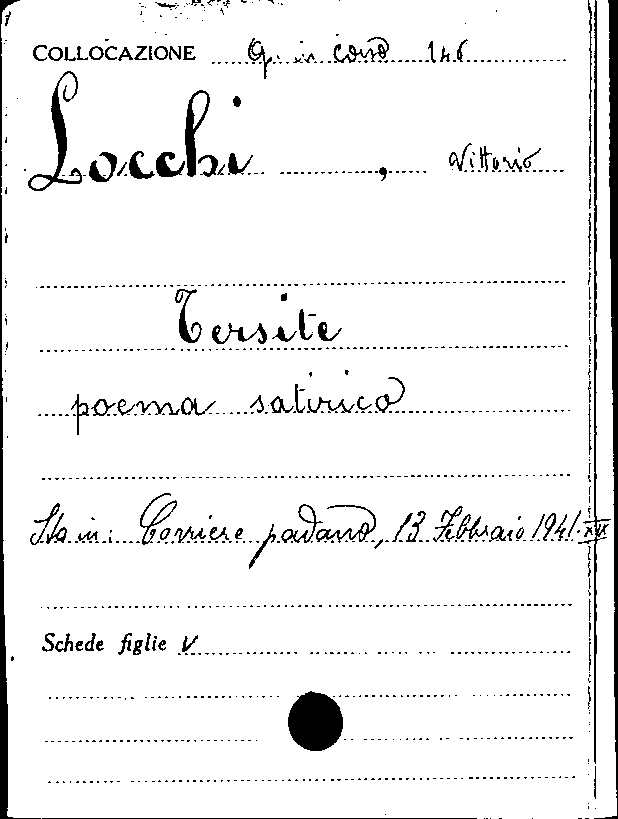 COLLOCAZIONE G. in corso 146
Locchi, Vittorio
Tersite
poema satirico
Sta in: Corriere padano, 13 Febbraio 1941.
Schede figlie V